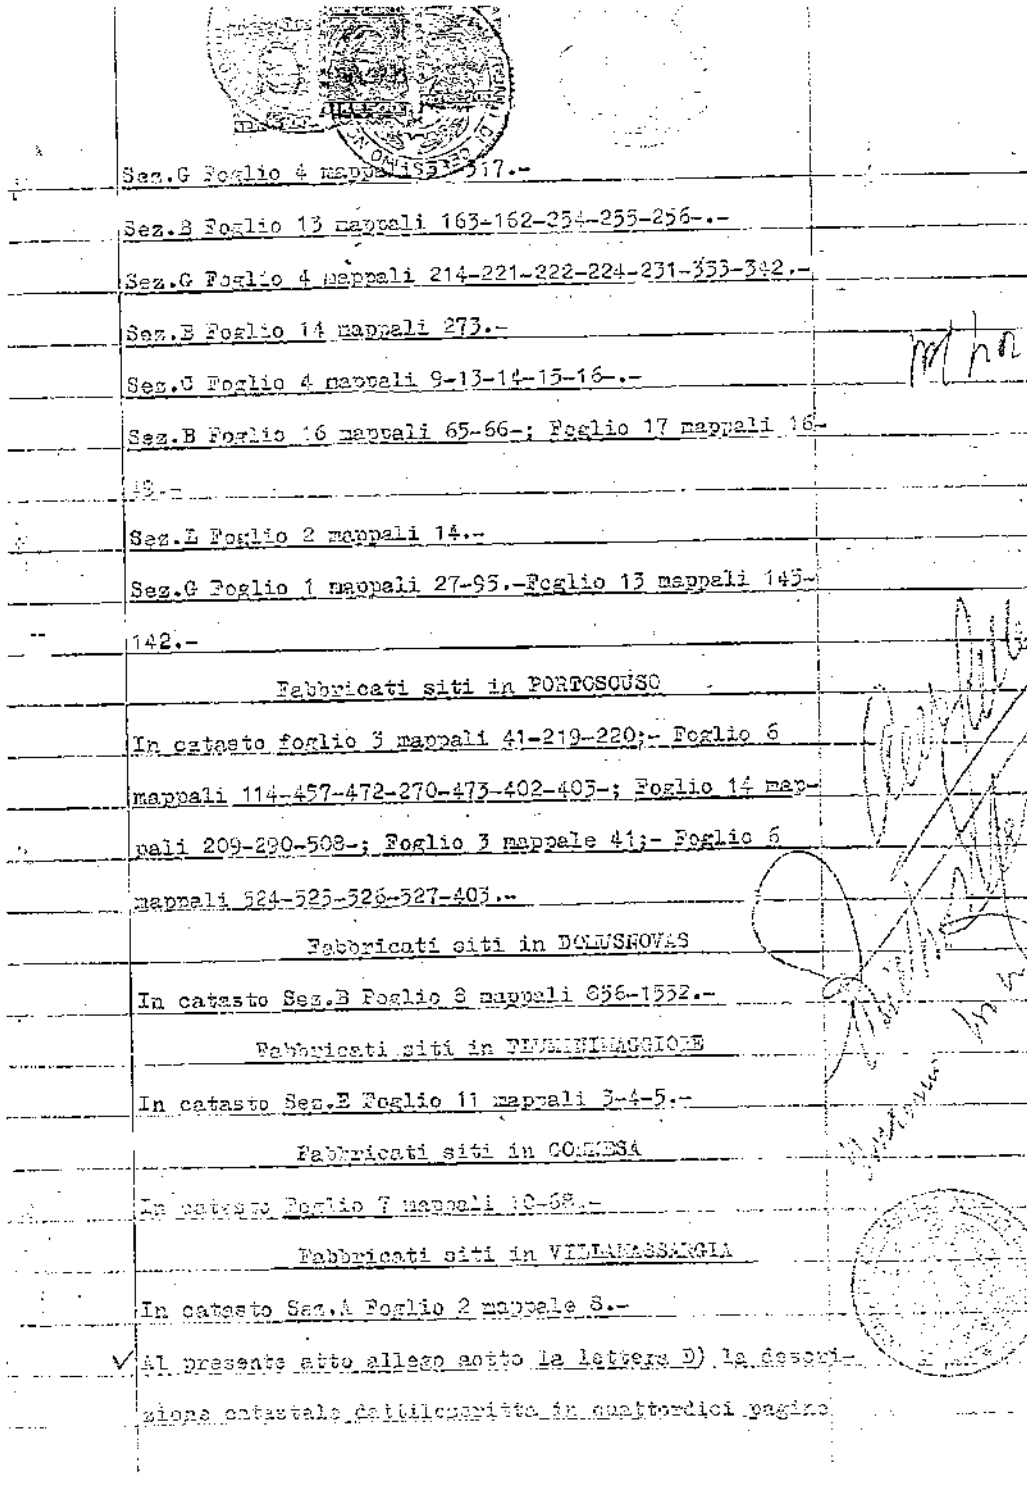 Sez.G Foglio 4 mappali 317.-
Sez.B Foglio 13 mappali 163-162-254-255-256-.-
Sez.G Foglio 4 mappali 214-221-222-224-231-353-342.-
Sez.E Foglio 14 mappali 273.-
Sez.C Foglio 4 mappali 9-13-14-15-16-.-
Sez.B Foglio 16 mappali 65-66-; Foglio 17 mappali 16-
49.-
Sez.E Foglio 2 mappali 14.-
Sez.G Foglio 1 mappali 27-95.-Foglio 13 mappali 145-
142.-
Fabbricati siti in PORTOSCUSO
In catasto foglio 3 mappali 41-219-220;- Foglio 6
mappali 114-457-472-270-473-402-403-; Foglio 14 map-
pali 209-290-508-; Foglio 3 mappale 41;- Foglio 6
mappali 524-525-526-527-403.-
Fabbricati siti in DOMUSNOVAS
In catasto Sez.B Foglio 8 mappali 856-1552.-
Fabbricati siti in FLUMINIMAGGIORE
In catasto Sez.E Foglio 11 mappali 3-4-5.-
Fabbricati siti in GONNESA
In catasto Foglio 7 mappali 10-68.-
Fabbricati siti in VILLAMASSARGIA
In catasto Sez.A Foglio 2 mappale 8.-
Al presente atto allego sotto la lettera D) la descri-
zione catastale dattiloscritta in quattordici pagine